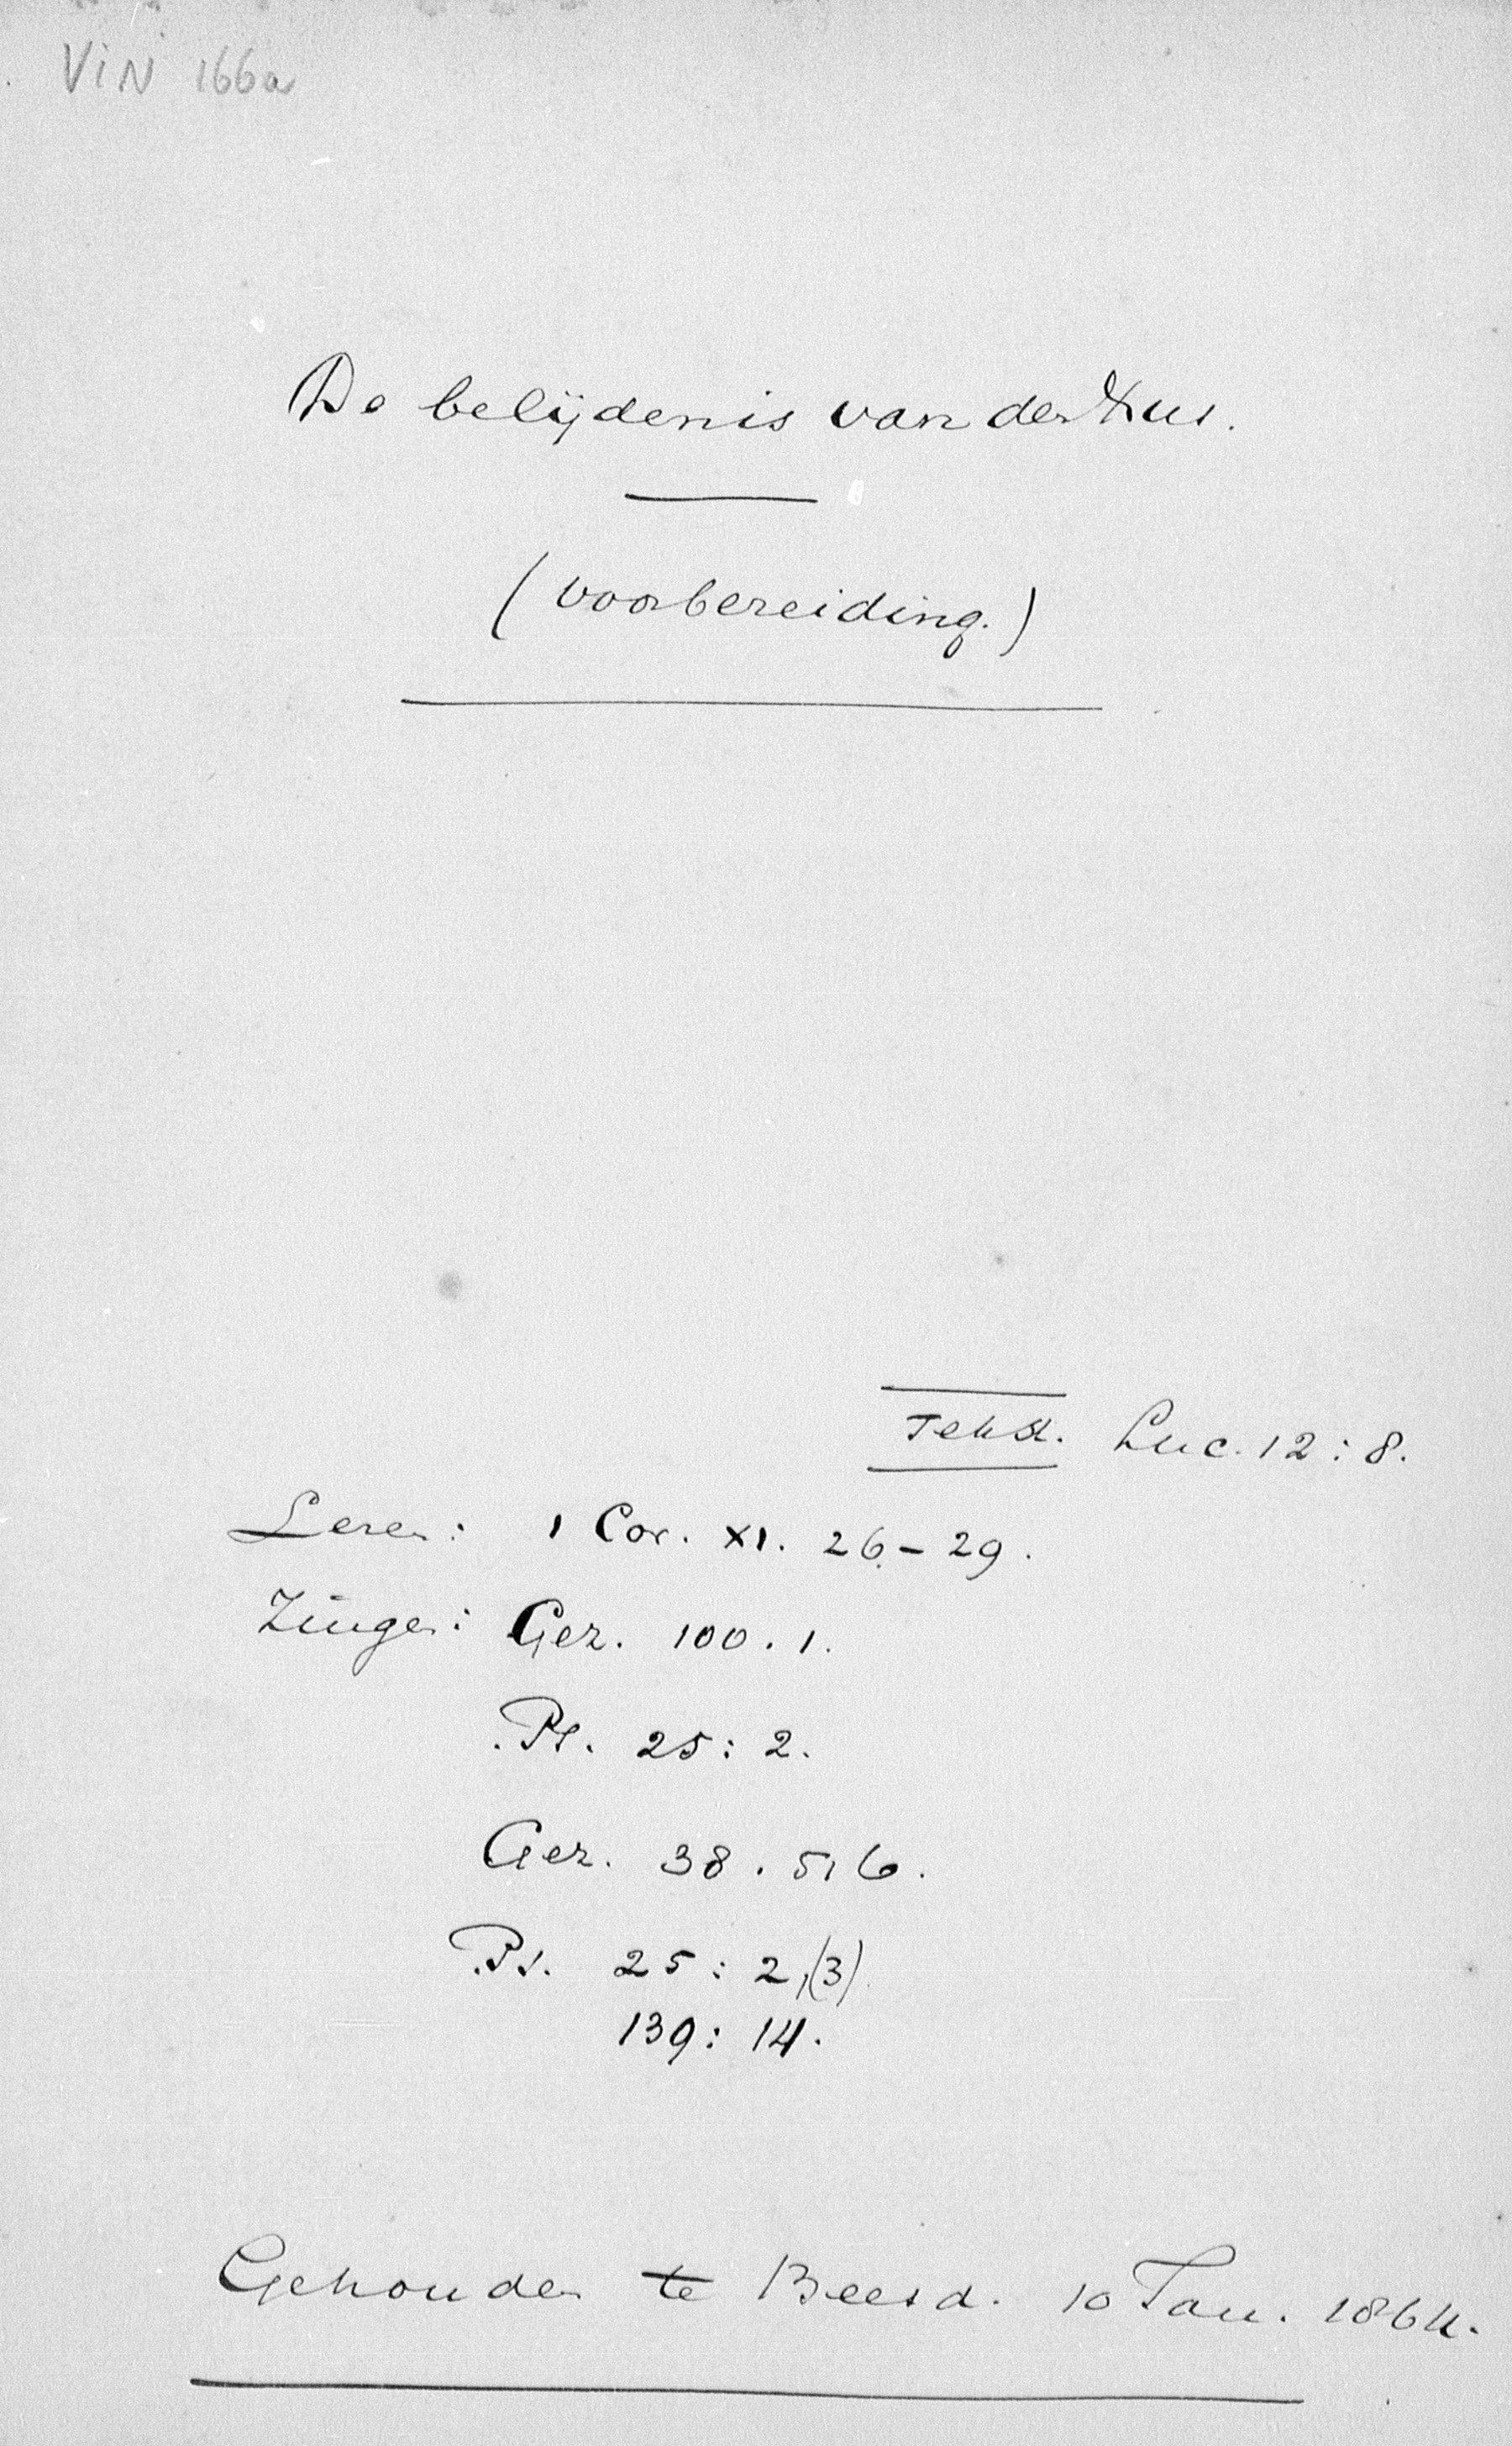 VIN 166a
De belijdenis van den Xus.
(voorbereiding.)
Tekst. Luc. 12:8.
Lezen: 1 Cor. XI. 26-29.
Zingen: Gez. 100.1.
Ps. 25:2.
Gez. 38.5,6.
Ps. 25:2,(3)
139:14.
Gehouden te Beesd. 10 Jan. 1864.